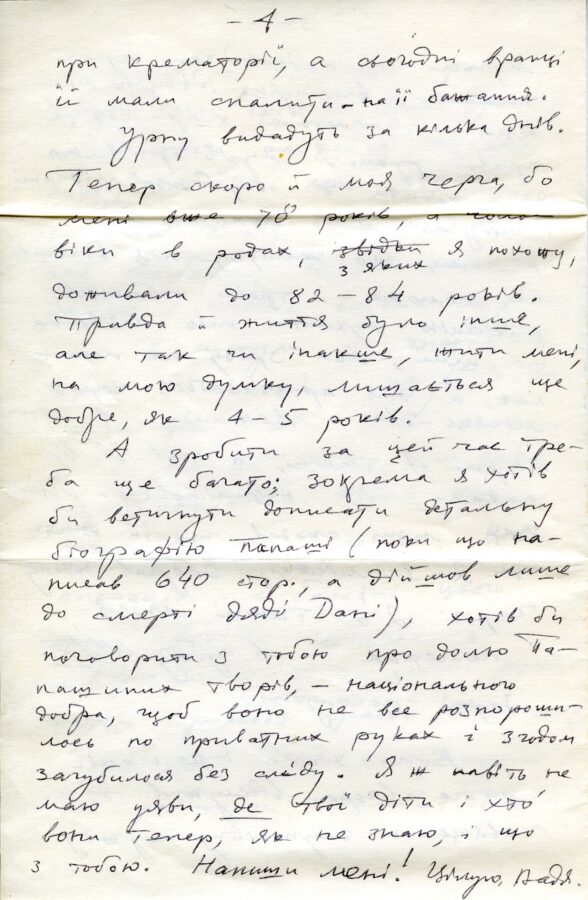 – 4 –
при крематорії, а сьогодні вранці
її мали спалити – на її бажання.
Урну видадуть за кілька днів.
Тепер скоро й моя черга, бо
мені вже 78 років, а чоло-
віки в родах, звідки я походжу,
з яких
доживали до 82 – 84 років.
Правда й життя було інше,
але так чи інакше, жити мені,
на мою думку, лишається ще
добре, як 4 – 5 років.
А зробити за цей час тре-
ба ще багато; зокрема я хотів
би встигнути дописати детальну
біографію Папаші (поки що на-
писав 640 стор., а дійшов лише
до смерті дяді Дані), хотів би
поговорити з тобою про долю Па-
пашиних творів, – національного
добра, щоб воно не все розпороши-
лось по приватних руках і згодом
загубилося без сліду. Я ж навіть не
маю уяви, де твої діти і хто
вони тепер, як не знаю, і що
з тобою. Напиши мені! Цілую, Вадя.